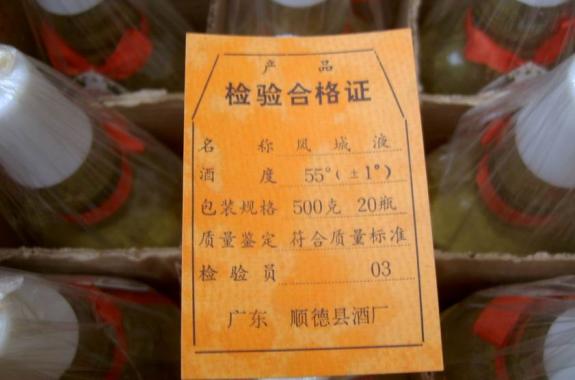 产 品
检验合格证
名 称 凤 城 液
酒 度 55°(±1°)
包装规格 500克 20瓶
质量鉴定 符合质量标准
检验员 03
广东 顺德县酒厂